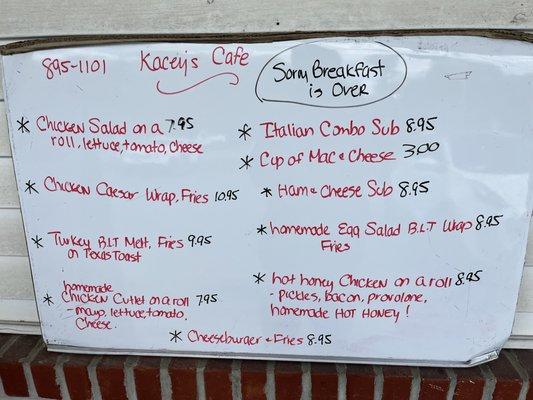 895-1101 Kacey's Cafe
Sorry Breakfast
is Over
* Chicken Salad on a 7.95
roll, lettuce, tomato, cheese
* Chicken Caesar Wrap, Fries 10.95
* Turkey B.L.T Melt, Fries 9.95
on Texas Toast
homemade
* Chicken Cutlet on a roll 7.95
- mayo, lettuce, tomato,
Cheese.
* Italian Combo Sub 8.95
* Cup of Mac & Cheese 3.00
* Ham & Cheese Sub 8.95
* homemade Egg Salad B.L.T Wrap 8.95
Fries
* hot honey Chicken on a roll 8.95
- pickles, bacon, provolone,
homemade HOT HONEY!
* Cheeseburger & Fries 8.95